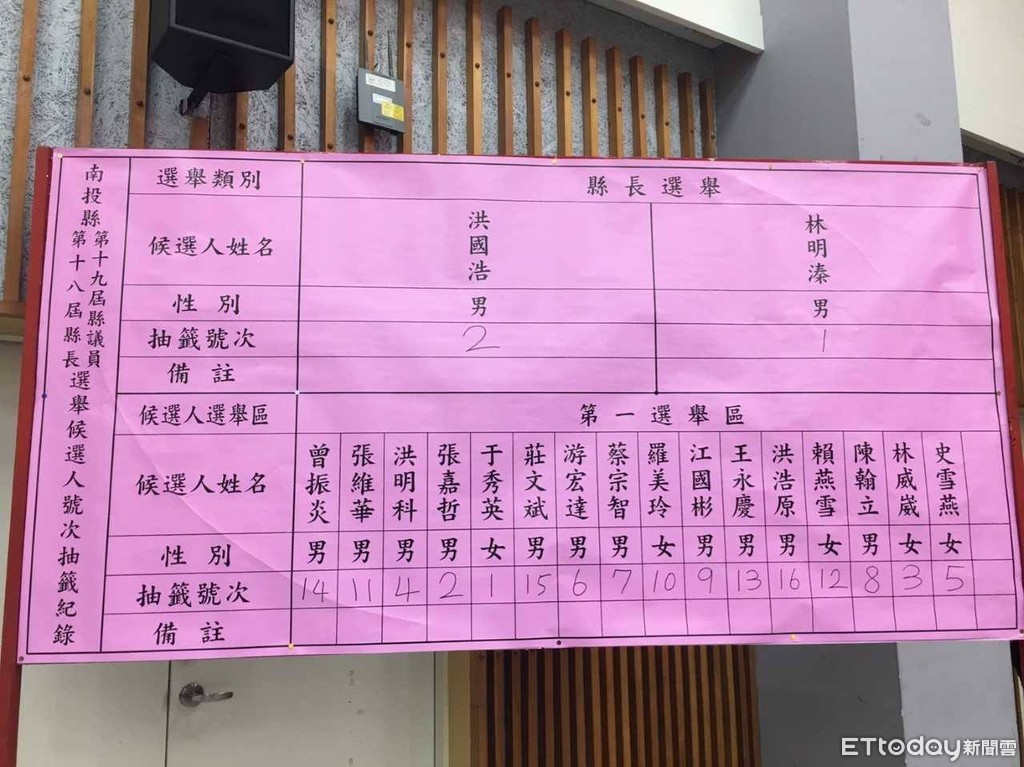 南投縣第十九屆縣議員第十八屆縣長選舉候選人號次抽籤紀錄
選舉類別 縣長選舉
候選人姓名 洪國浩 林明溱
性別 男 男
抽籤號次 2 1
備註
候選人選舉區 第一選舉區
候選人姓名 曾振炎 張維華 洪明科 張嘉哲 于秀英 莊文斌 游宏達 蔡宗智 羅美玲 江國彬 王永慶 洪浩原 賴燕雪 陳翰立 林威崴 史雪燕
性別 男 男 男 男 女 男 男 男 女 男 男 男 女 男 女 女
抽籤號次 14 11 4 2 1 15 6 7 10 9 13 16 12 8 3 5
備註
ETtoday新聞雲